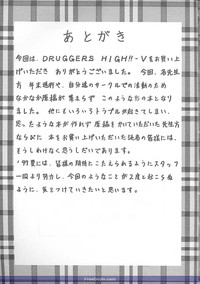 あとがき
今回は、DRUGGERS HIGH!!-Vをお買い上
げいただき ありがとうございました。今回、各先生
方 年末進行や、自分達のサークルでの活動のため
なかなか原稿が 集まらず このようなかたちとなり
ました。他にもいろいろトラブルが起きてしまい、
思ったような本が作れず 原稿をかいていただいた先生方
ならびに 本をお買い上げいただいた読者の皆様には、
もうしわけなく思うしだいであります。
'99夏には、皆様の期待にこたえられるようにスタッフ
一同より努力し、今回のようなことが2度とおこらぬ
ように、気をつけていきたいと思います。